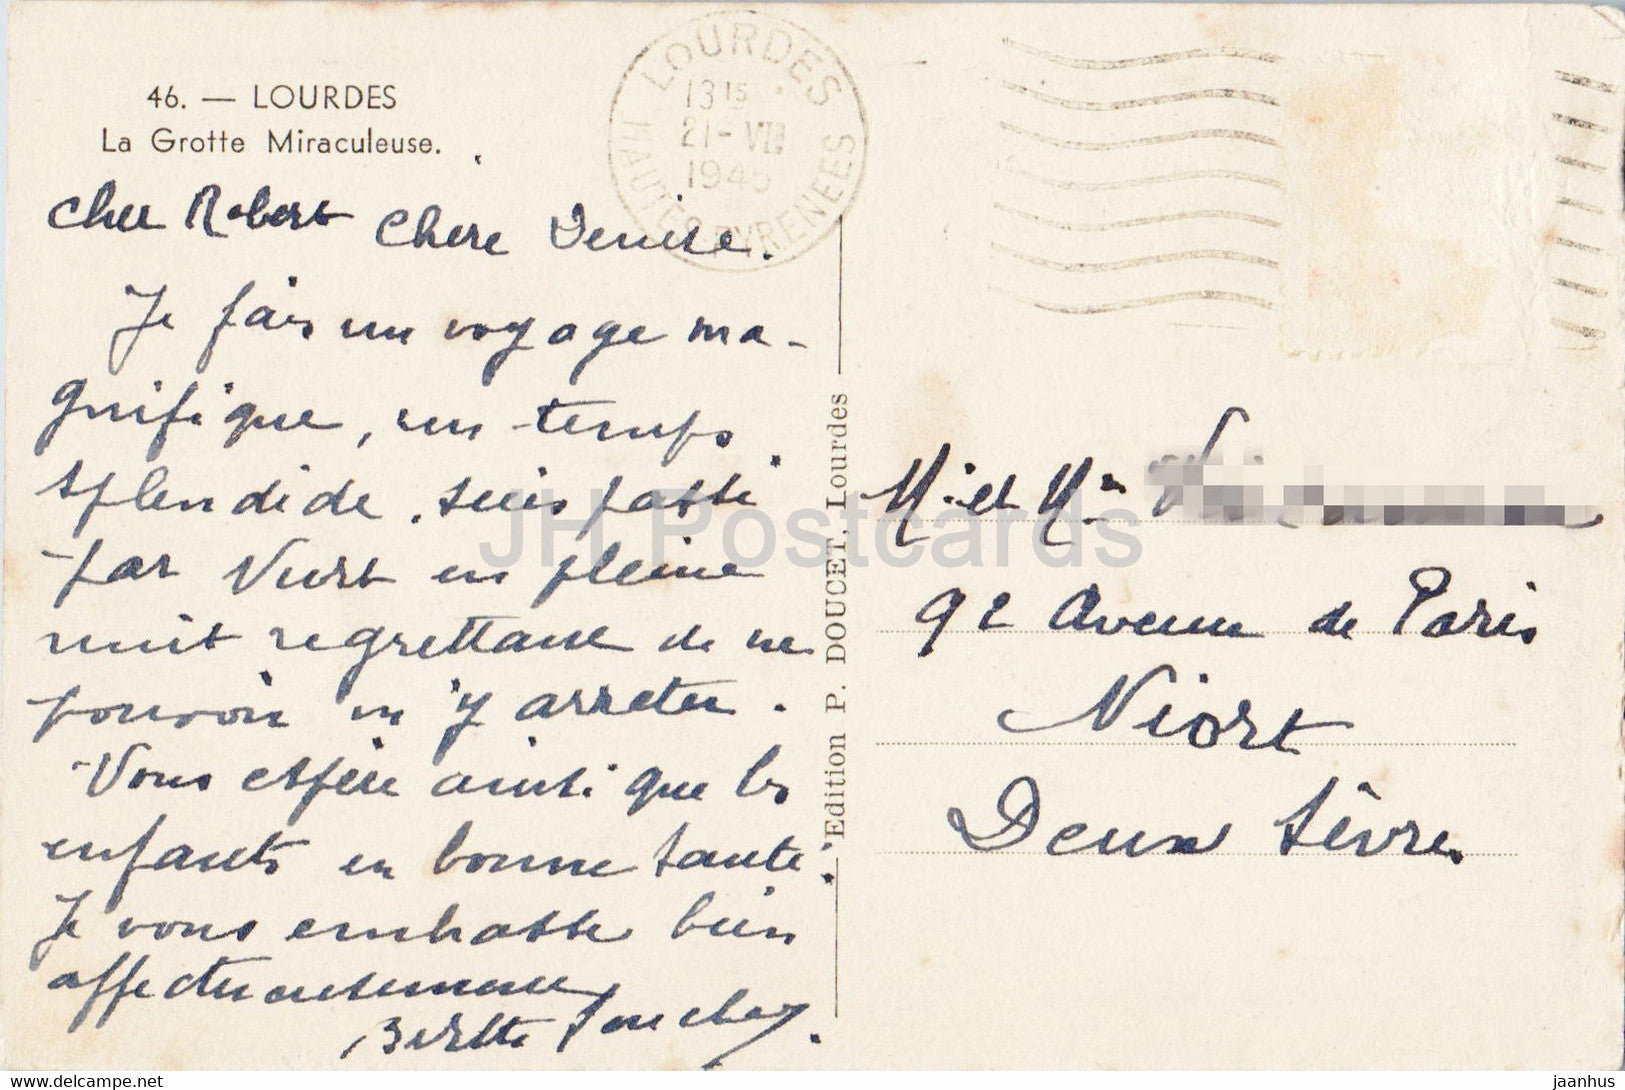 46. — LOURDES
La Grotte Miraculeuse.
LOURDES
13 15
21 - VII
1945
HAUTES PYRENEES
Cher Robert Chere Denise.
Je fais un voyage ma-
gnifique, un temps
splendide. suis passé
par Niort en pleine
nuit regrettant de ne
pouvoir m'y arreter.
Vous espère ainsi que les
enfants en bonne santé.
Je vous embrasse bien
affectueusement
Berthe
Edition P. DOUCET, Lourdes
Mr et Mme
92 Avenue de Paris
Niort
Deux Sèvres
JH Postcards
Delcampe.net
jaanhus